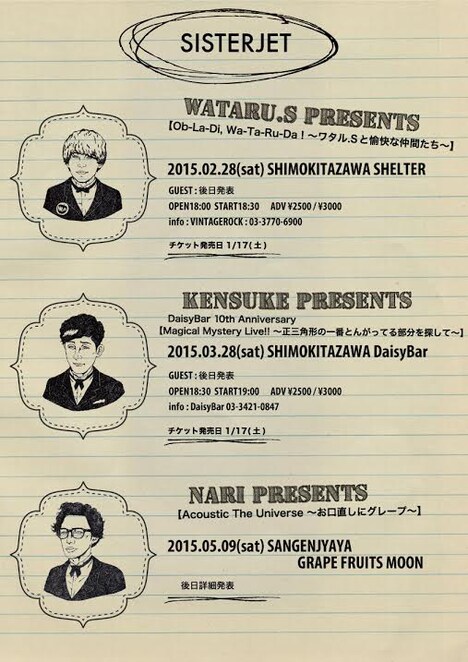 SISTERJET
WATARU.S PRESENTS
【Ob-La-Di, Wa-Ta-Ru-Da！〜ワタル.Sと愉快な仲間たち〜】
2015.02.28(sat) SHIMOKITAZAWA SHELTER
GUEST : 後日発表
OPEN18:00 START18:30 ADV ¥2500 / ¥3000
info : VINTAGEROCK : 03-3770-6900
チケット発売日 1/17( 土 )
KENSUKE PRESENTS
DaisyBar 10th Anniversary
【Magical Mystery Live!! 〜正三角形の一番とんがってる部分を探して〜】
2015.03.28(sat) SHIMOKITAZAWA DaisyBar
GUEST : 後日発表
OPEN18:30 START19:00 ADV ¥2500 / ¥3000
info : DaisyBar 03-3421-0847
チケット発売日 1/17( 土 )
NARI PRESENTS
【Acoustic The Universe 〜お口直しにグレープ〜】
2015.05.09(sat) SANGENJYAYA
GRAPE FRUITS MOON
後日詳細発表